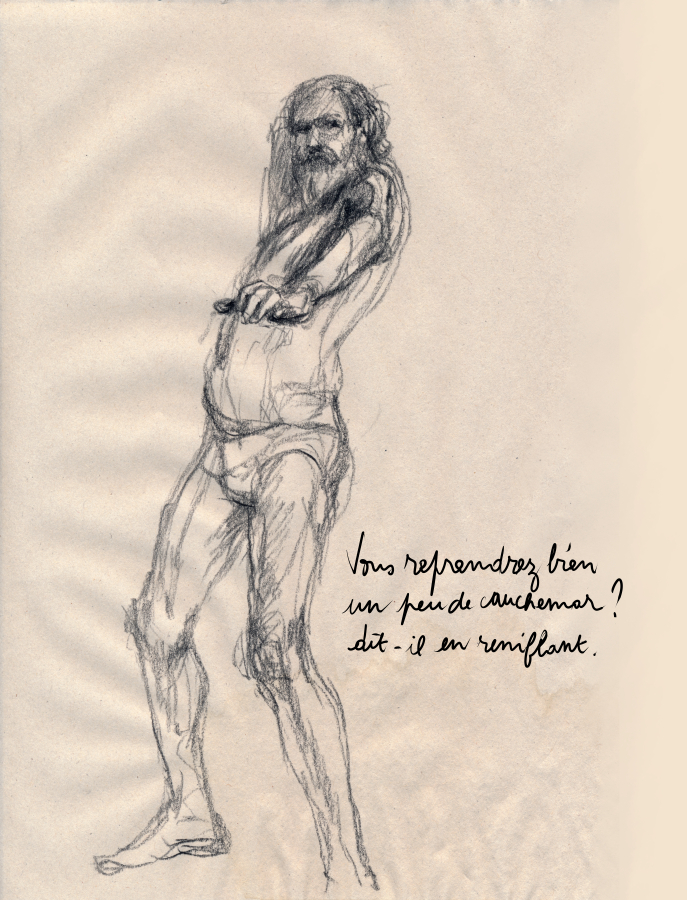 Vous reprendrez bien
un peu de cauchemar ?
dit-il en reniflant.